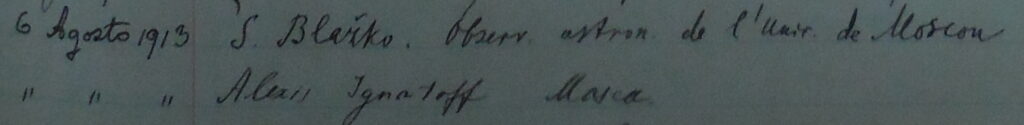 6 Agosto 1913 S. Blažko. Observ. astron. de l'Univ. de Moscou
" " " Alexis Ignatoff Mosca